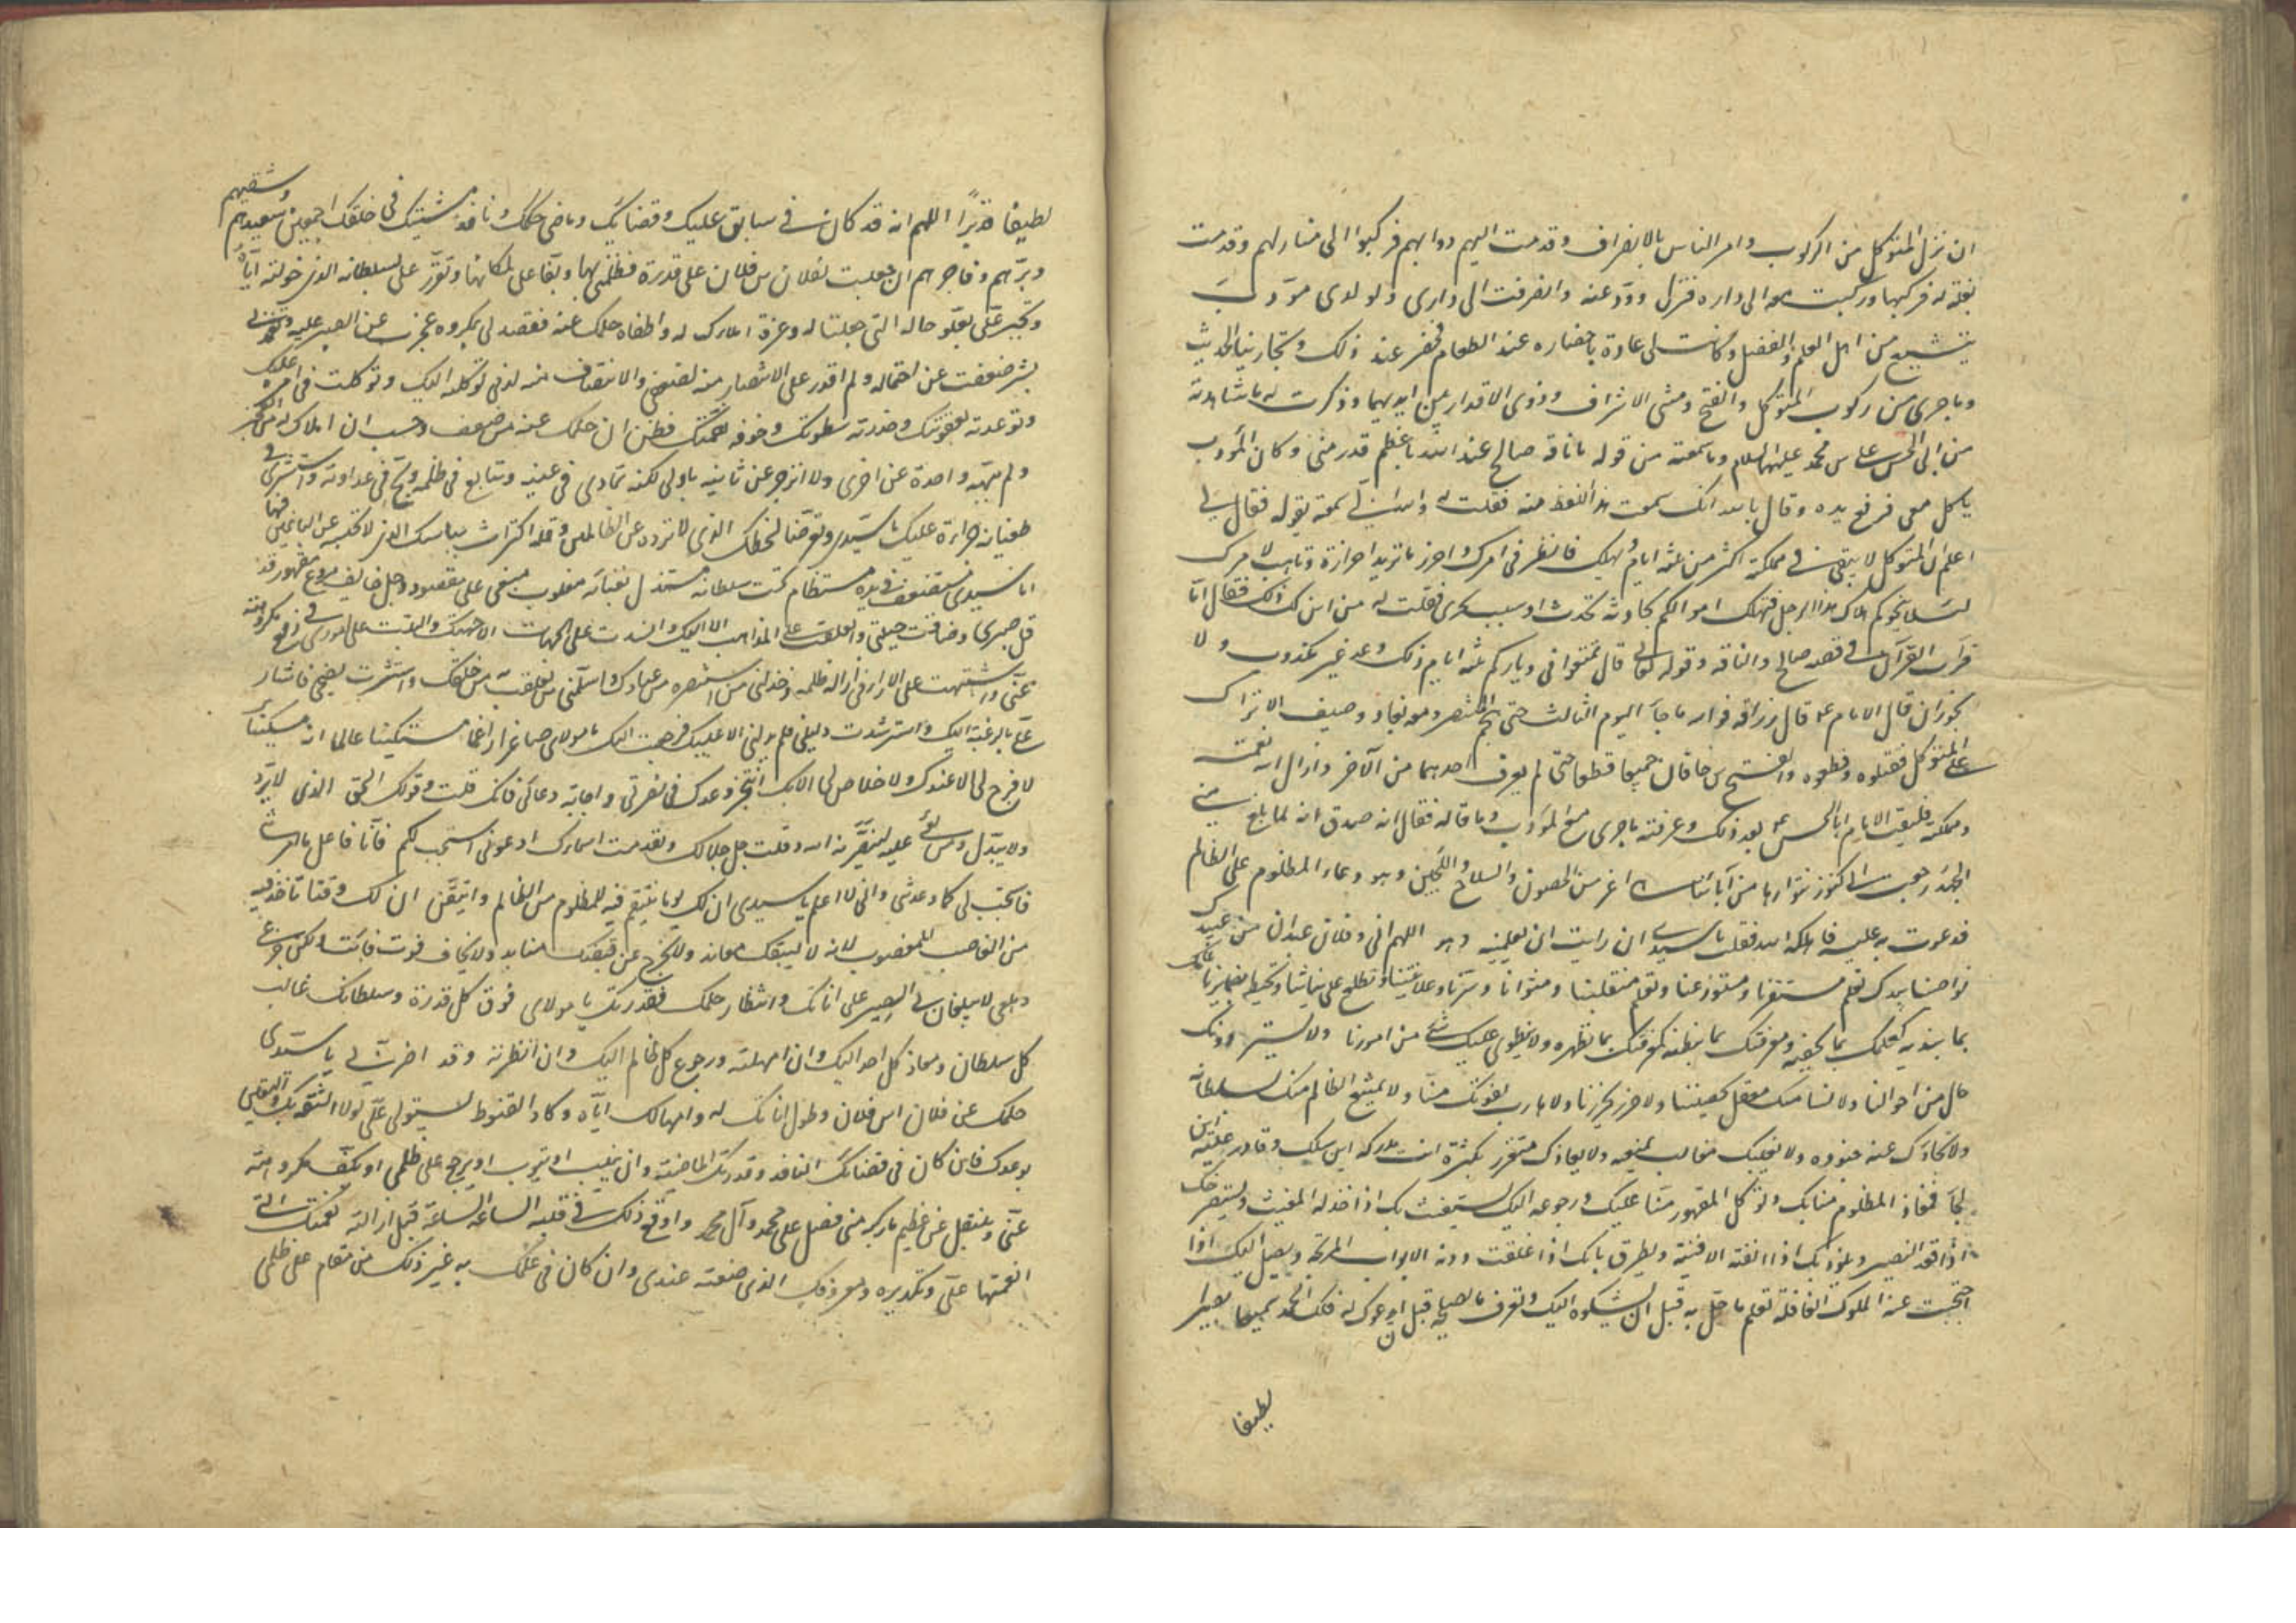 ان نزل المتوكل من الركوب وامر الناس بالانصراف وقدمت اليهم دوابهم فركبوا الى منازلهم وقدمت
بغلة له فركبها وركبت معه الى داره فنزل وودعته وانصرفت الى دارى ولولدى مؤدب
يتشيع من اهل العلم والفضل وكانت لى عادة باحضاره عند الطعام فحضر عند ذلك وتجارينا الحديث
وما جرى من ركوب المتوكل والفتح ومشى الاشراف وذوى الاقدار بين ايديهما وذكرت له ما شاهدته
من ابى الحسن على بن محمد عليهما السلام وما سمعته من قوله ما ناقة صالح عند الله باعظم قدر منى وكان المؤدب
ياكل معى فرفع يده وقال بالله انك سمعت هذا اللفظ منه فقلت له والله انى سمعته يقوله فقال لى
اعلم ان المتوكل لا يبقى فى مملكته اكثر من ثلثة ايام ويهلك فانظر فى امرك واحرز ما تريد احرازه وتاهب لامرك
لئلا يفجؤكم هلاك هذا الرجل فتهلك اموالكم بحادثة تحدث او سبب يجرى فقلت له من اين لك ذلك فقال اما
قرات القرآن فى قصة صالح والناقة وقوله تعالى قال تمتعوا فى دياركم ثلثة ايام ذلك وعد غير مكذوب ولا
يجوز ان قال الامام ع قال زرافه فوالله ما جآء اليوم الثالث حتى هجم المنتصر ومعه بغا ووصيف والاتراك
على المتوكل فقتلوه وقطعوه والفتح بن خاقان جميعا قطعا حتى لم يعرف احدهما من الآخر وازال الله نعمته
ومملكته فلقيت الامام ابا الحسن ع بعد ذلك وعرفته ما جرى مع المؤدب وما قاله فقال انه صدق انه لما بلغ منى
الجهد رجعت الى كنوز نتوارثها من آبائنا اعز من الحصون والسلاح والجنن وهو دعاء المظلوم على الظالم
فدعوت به عليه فاهلكه الله فقلت يا سيدى ان رايت ان تعلمنيه وهو اللهم انى وفلان عبدان من عبيدك
نواصينا بيدك تعلم مستقرنا ومستودعنا وتعلم منقلبنا ومثوانا وسرنا وعلانيتنا وتطلع على نياتنا وتحيط بضمايرنا علمك
بما نبديه كعلمك بما نخفيه ومعرفتك بما نبطنه كمعرفتك بما نظهره ولا ينطوى عليك شئ من امورنا ولا يستتر دونك
حال من احوالنا ولا لنا منك معقل يحصننا ولا حرز يحرزنا ولا هارب يفوتك منا ولا يمتنع الظالم منك بسلطانه
ولا يجاهدك عنه جنوده ولا يغالبك مغالب بمنعه ولا يعازك متعزز بكثرة انت مدركه اين سلك وقادر عليه اين
لجأ فمعاذ المظلوم منا بك وتوكل المقهور منا عليك ورجوعه اليك يستغيث بك اذا خذله المغيث ويستصرخك
اذا قعد النصير ويلوذ بك اذا انفته الافنية ويطرق بابك اذا اغلقت دونه الابواب المرتجة ويصل اليك اذا
احتجبت عنه الملوك الغافلة تعلم ما حل به قبل ان يشكوه اليك وتعرف ما يصلحه قبل ان يدعوك له فلك الحمد سميعا بصيرا
لطيفا
لطيفا قديرا اللهم انه قد كان فى سابق علمك وقضائك وماضى حكمك ونافذ مشيتك فى خلقك اجمعين سعيدهم وشقيهم
وبرهم وفاجرهم ان جعلت لفلان بن فلان على قدرة فظلمنى بها وبغا على لمكانها وتعزز على بسلطانه الذى خولته اياه
وتجبر على بعلو حاله التى جعلتها له وعزه املاؤك له واطغاه حلمك عنه فقصدنى بمكروه عجزت عن الصبر عليه وتعمدنى
بشر ضعفت عن احتماله ولم اقدر على الانتصار منه لضعفى والانتصاف منه لذلى فوكلته اليك وتوكلت فى امره عليك
وتوعدته بعقوبتك وحذرته سطوتك وخوفته نقمتك فظن ان حلمك عنه من ضعف وحسب ان املاك له من عجز
ولم تنهه واحدة عن اخرى ولا انزجر عن ثانيه باولى لكنه تمادى فى غيه وتتابع فى ظلمه ولج فى عداوته واستشرى فى
طغيانه جراءة عليك يا سيدى وتعرضا لسخطك الذى لا ترده عن الظالمين وقلة اكتراث بباسك الذى لا تحبسه عن الباغين
فها انا سيدى مستضعف فى يده مستضام تحت سلطانه مستذل بفنائه مغلوب مبغى على مقصود وجل خايف مروع مقهور قد
قل صبرى وضاقت حيلتى وانغلقت على المذاهب الا اليك وانسدت على الجهات الا جهتك والتبست على امورى فى دفع مكروهه
عنى واشتبهت على الارآء فى ازالة ظلمه وخذلنى من استنصرته من عبادك واسلمنى من تعلقت به من خلقك واستشرت نصيحى فاشار
على بالرغبة اليك واسترشدت دليلى فلم يدلنى الا عليك فرجعت اليك يا مولاى صاغرا راغما مستكينا عالما انه
لا فرج لى الا عندك ولا خلاص لى الا بك انتجز وعدك فى نصرتى واجابة دعائى فانك قلت وقولك الحق الذى لا يرد
ولا يبدل ومن بغى عليه لينصرنه الله وقلت جل جلالك وتقدست اسماؤك ادعونى استجب لكم فانا فاعل ما امرتنا
فاستجب لى كما وعدتنى وانى لاعلم يا سيدى ان لك يوما تنتقم فيه للمظلوم من الظالم واتيقن ان لك وقتا تاخذ فيه
من الغاصب للمغصوب لانه لا يسبقك معاند ولا يخرج عن قبضتك منابذ ولا تخاف فوت فائت ولكن جزعى
وهلعى لا يبلغان بى الصبر على اناتك وانتظار حلمك فقدرتك يا مولاى فوق كل قدرة وسلطانك غالب
كل سلطان ومعاد كل احد اليك وان امهلته ورجوع كل ظالم اليك وان انظرته وقد اضر بى يا سيدى
حلمك عن فلان بن فلان وطول اناتك له وامهالك اياه وكاد القنوط يستولى على لولا الثقة بك واليقين
بوعدك فان كان فى قضائك النافذ وقدرتك الماضية ان ينيب او يتوب او يرجع عن ظلمى او يكف مكروهه
عنى وينتقل عن عظيم ما ركبه منى فصل على محمد وآل محمد واوقع ذلك فى قلبه الساعة الساعة قبل ازالة نعمتك التى
انعمتها على وتكديره ومعروفك الذى صنعته عندى وان كان فى علمك به غير ذلك من مقام على ظلمى